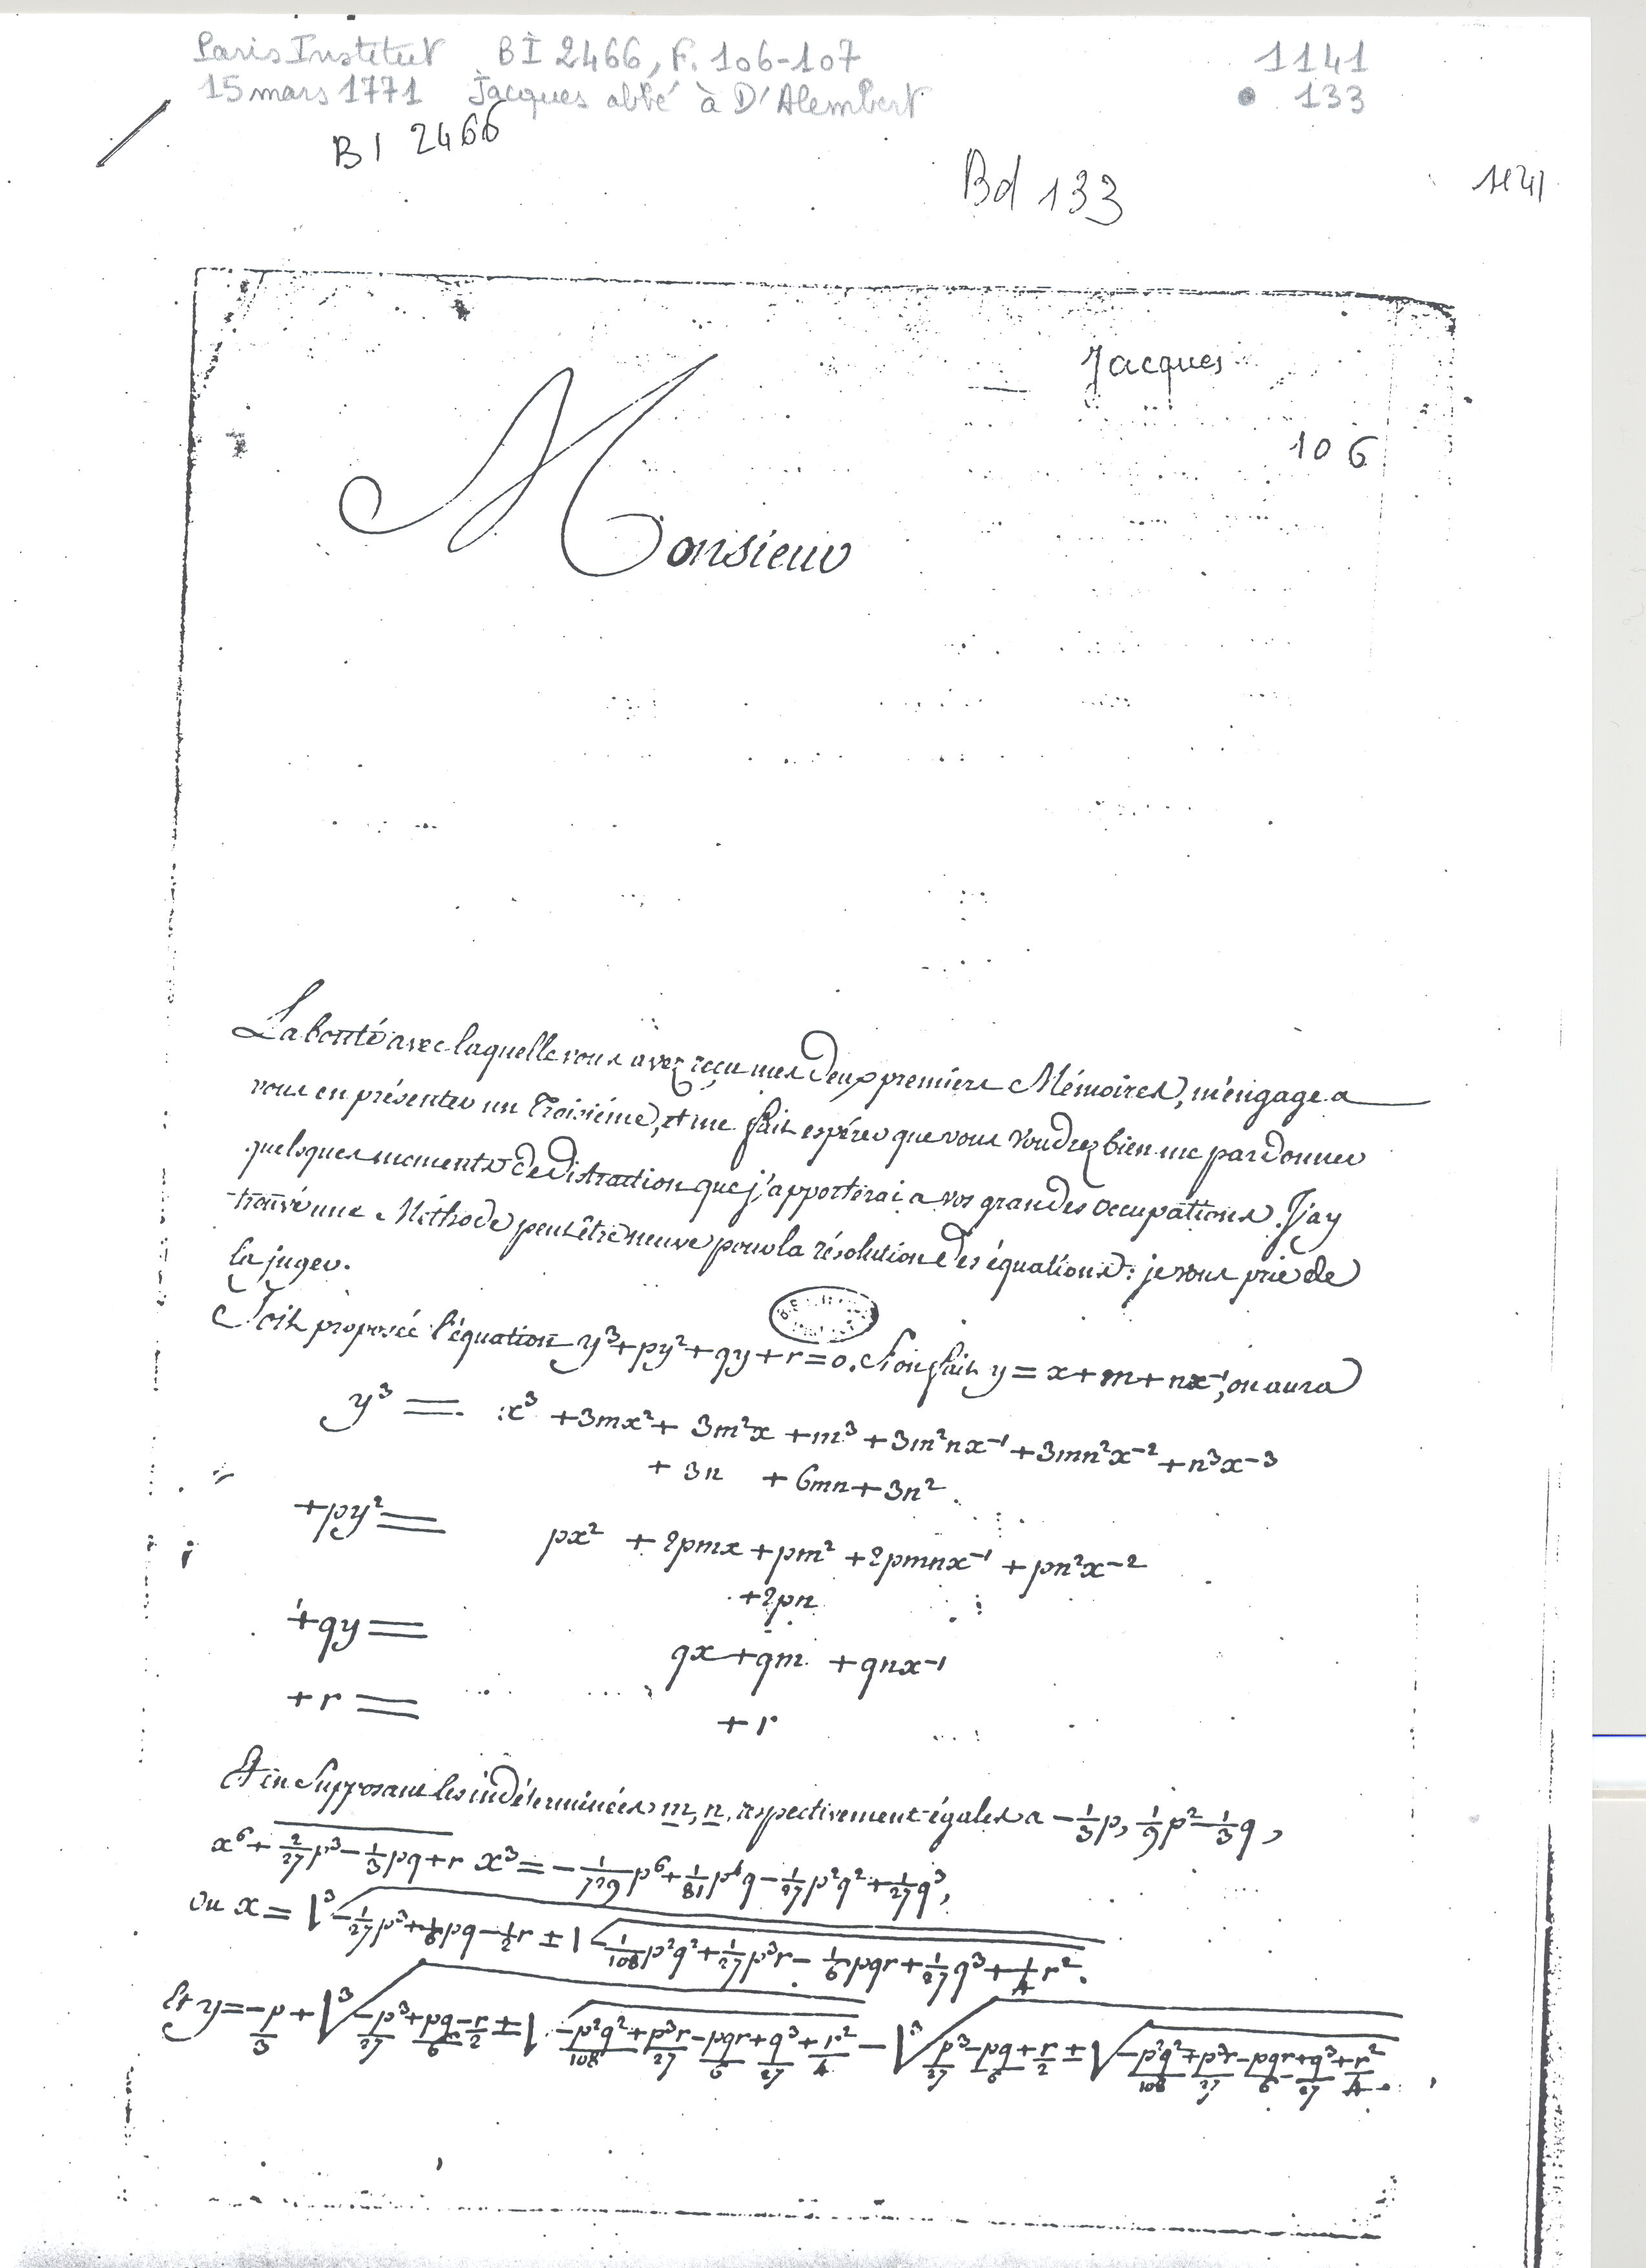 Paris Institut BI 2466, F. 106-107 1141
15 mars 1771 Jacques abbé à D'Alembert 133
BI 2466
Bd 133 1141
Jacques
106
Monsieur
La bonté avec laquelle vous avez reçu mes deux premiers Mémoires, m'engage a
vous en présenter un Troisiéme, et me fait espérer que vous voudrez bien me pardonner
quelques moments de distraction que j'apporterai a vos grandes occupations. J'ay
trouvé une Méthode peutêtre neuve pour la résolution des équations : je vous prie de
la juger.
Soit proposée l'équation y³+py²+qy+r=0. Si on fait y=x+m+nx⁻¹, on aura
y³ = x³ +3mx²+ 3m²x +m³ +3m²nx⁻¹ +3mn²x⁻² +n³x⁻³
+ 3n + 6mn+3n²
+py² = px² +2pmx +pm² +2pmnx⁻¹ +pn²x⁻²
+2pn
+qy = qx +qm +qnx⁻¹
+r = +r
Et en Supposant les indéterminées m, n, respectivement égales a -1/3p, 1/9p²-1/3q,
x⁶+ 2/27p³-1/3pq+r x³=-1/729p⁶+1/81p⁴q-1/27p²q²+1/27q³,
ou x=√³ -1/27p³+1/6pq-1/2r ±√ -1/108p²q²+1/27p³r-1/6pqr+1/27q³+1/4r².
Et y=-p/3 +√³ -p³/27+pq/6-r/2 ±√ -p²q²/108+p³r/27-pqr/6+q³/27+r²/4 -√³ p³/27-pq/6+r/2 ±√ -p²q²/108+p³r/27-pqr/6+q³/27+r²/4.